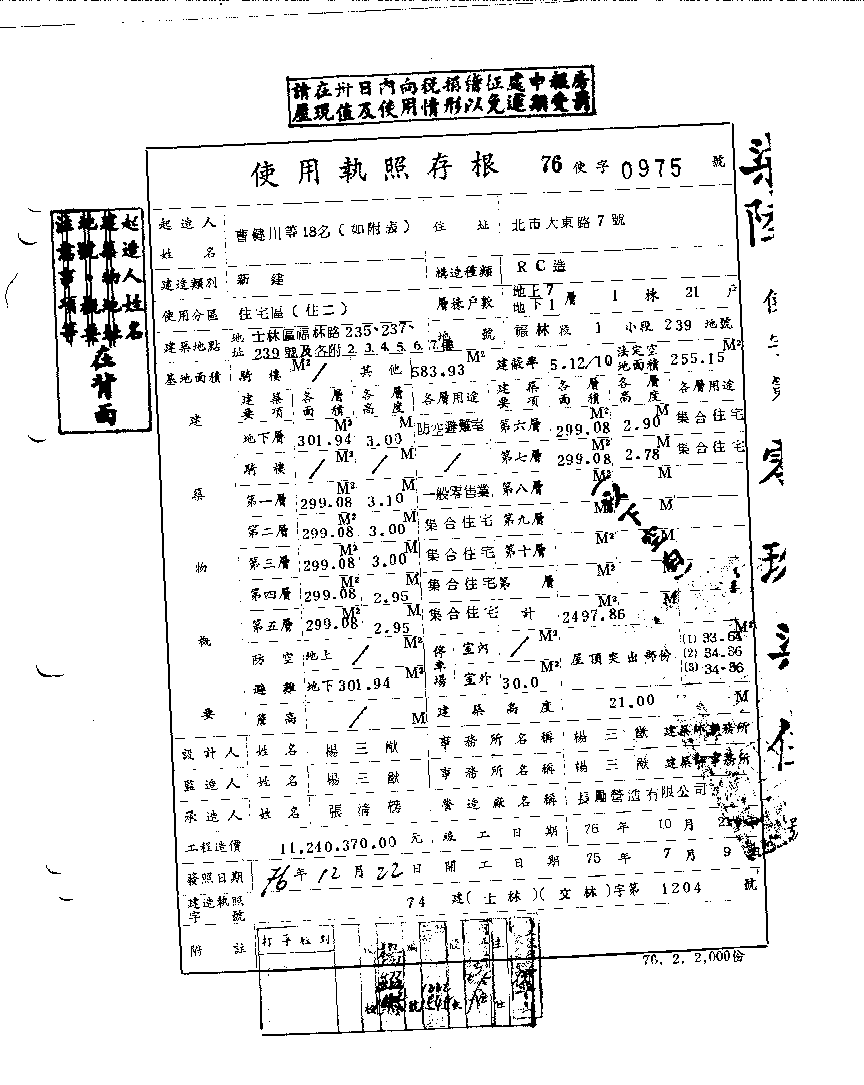 請在卅日內向稅捐稽征處申報房
屋現值及使用情形以免逾期受罰
使用執照存根 76 使字 0975 號
起造人姓名
建築物地址
地號、概要
注意事項等
在背面
起造人姓名 曹健川等18名(如附表) 住址 北市大東路7號
建造類別 新建 構造種類 RC造
使用分區 住宅區(住二) 層棟戶數 地上7地下1層 1棟 21戶
建築地點 地址 士林區福林路235、237、239號及各附2.3.4.5.6.7樓 地號 福林段1小段239地號
基地面積 騎樓 M² / 其他 583.93 M² 建蔽率 5.12/10 法定空地面積 255.15 M²
建築物概要
建築要項 各層面積 各層高度 各層用途 建築要項 各層面積 各層高度 各層用途
地下層 301.94 M² 3.00 M 防空避難室 第六層 299.08 M² 2.90 M 集合住宅
騎樓 / M² / M / 第七層 299.08 M² 2.78 M 集合住宅
第一層 299.08 M² 3.10 M 一般零售業 第八層 M² M
第二層 299.08 M² 3.00 M 集合住宅 第九層 M² M
第三層 299.08 M² 3.00 M 集合住宅 第十層 M² M
第四層 299.08 M² 2.95 M 集合住宅 第 層 M² M
第五層 299.08 M² 2.95 M 集合住宅 計 2497.86 M²
防空避難 地上 / M² 停車場 室內 / M² 屋頂突出部份 (1) 33.64 (2) 34.36 (3) 34.36 M²
地下 301.94 M² 室外 30.0 M²
簷高 / M 建築高度 21.00 M
設計人 姓名 楊三猷 事務所名稱 楊三猷建築師事務所
監造人 姓名 楊三猷 事務所名稱 楊三猷建築師事務所
承造人 姓名 張清榜 營造廠名稱 長勵營造有限公司
工程造價 11,240,370.00 元 竣工日期 76年10月2
發照日期 76年12月22日 開工日期 75年7月9
建造執照字號 74 建(士林)(交林)字第1204號
附註
打字校對
76. 2. 2,000份